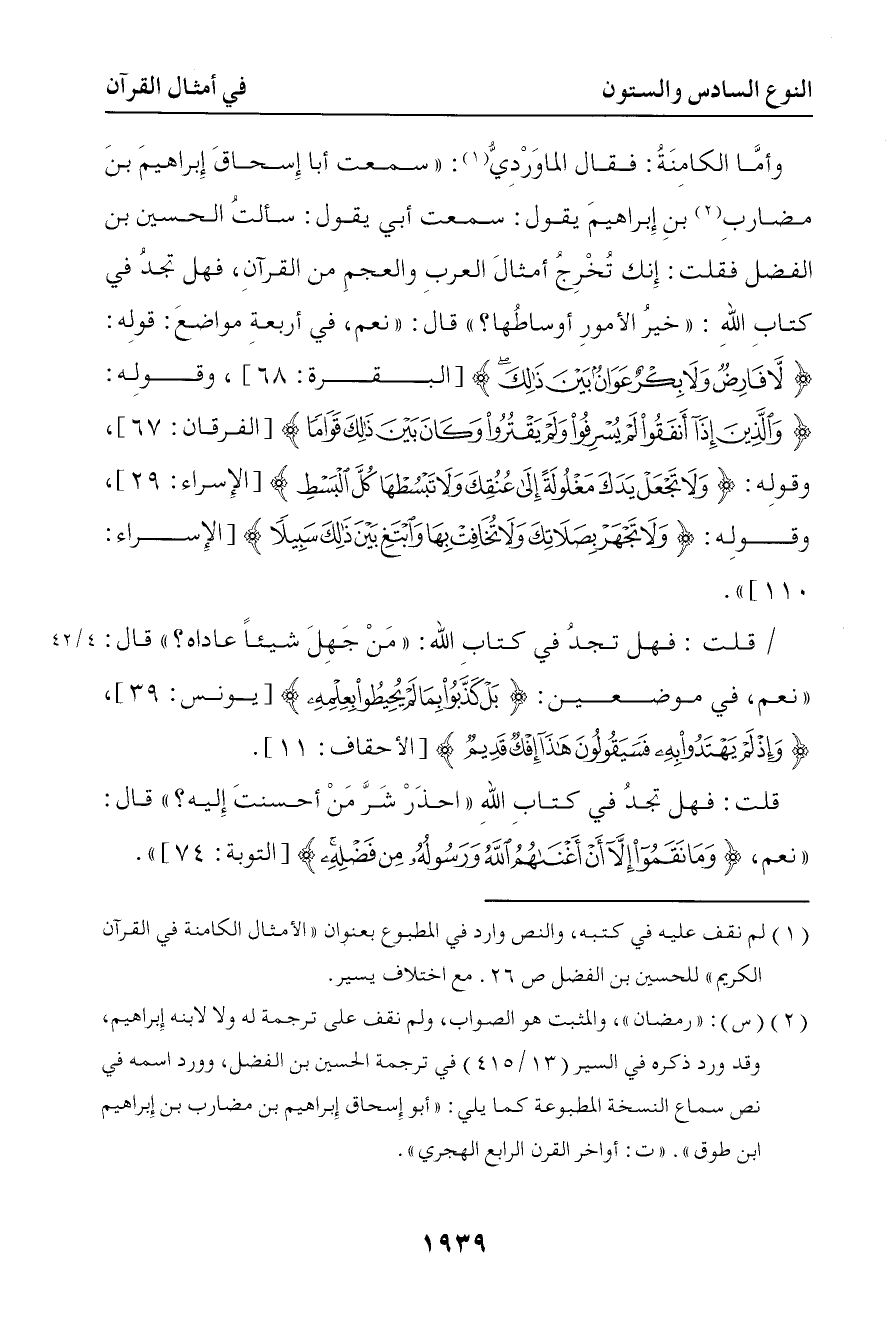 النوع السادس والستون في أمثال القرآن
وأمَّا الكامنَةُ: فقال الماوَرْديُّ(١): «سمعت أبا إسحاقَ إبراهيمَ بنَ
مضارب(٢) بنِ إبراهيمَ يقول: سمعت أبي يقول: سألتُ الحسين بن
الفضل فقلت: إنك تُخْرِجُ أمثالَ العربِ والعجمِ من القرآنِ، فهل تجدُ في
كتابِ اللهِ: «خيرُ الأمورِ أوساطُها؟» قال: «نعم، في أربعةِ مواضعَ: قوله:
﴿ لَّا فَارِضٌ وَلَا بِكْرٌ عَوَانٌ بَيْنَ ذَٰلِكَۖ ﴾ [البقرة: ٦٨]، وقوله:
﴿ وَٱلَّذِينَ إِذَآ أَنفَقُوا۟ لَمْ يُسْرِفُوا۟ وَلَمْ يَقْتُرُوا۟ وَكَانَ بَيْنَ ذَٰلِكَ قَوَامًا ﴾ [الفرقان: ٦٧]،
وقوله: ﴿ وَلَا تَجْعَلْ يَدَكَ مَغْلُولَةً إِلَىٰ عُنُقِكَ وَلَا تَبْسُطْهَا كُلَّ ٱلْبَسْطِ ﴾ [الإسراء: ٢٩]،
وقوله: ﴿ وَلَا تَجْهَرْ بِصَلَاتِكَ وَلَا تُخَافِتْ بِهَا وَٱبْتَغِ بَيْنَ ذَٰلِكَ سَبِيلًا ﴾ [الإسراء:
١١٠]».
/ قلت: فهل تجدُ في كتابِ الله: «مَنْ جَهِلَ شيئاً عاداه؟» قال: ٤٢/٤
«نعم، في موضعين: ﴿ بَلْ كَذَّبُوا۟ بِمَا لَمْ يُحِيطُوا۟ بِعِلْمِهِۦ ﴾ [يونس: ٣٩]،
﴿ وَإِذْ لَمْ يَهْتَدُوا۟ بِهِۦ فَسَيَقُولُونَ هَٰذَآ إِفْكٌ قَدِيمٌ ﴾ [الأحقاف: ١١].
قلت: فهل تجدُ في كتابِ الله «احذَرْ شَرَّ مَنْ أحسنتَ إليه؟» قال:
«نعم، ﴿ وَمَا نَقَمُوٓا۟ إِلَّآ أَنْ أَغْنَىٰهُمُ ٱللَّهُ وَرَسُولُهُۥ مِن فَضْلِهِۦۚ ﴾ [التوبة: ٧٤]».
(١) لم نقف عليه في كتبه، والنص وارد في المطبوع بعنوان «الأمثال الكامنة في القرآن
الكريم» للحسين بن الفضل ص ٢٦. مع اختلاف يسير.
(٢) (س): «رمضان»، والمثبت هو الصواب، ولم نقف على ترجمة له ولا لابنه إبراهيم،
وقد ورد ذكره في السير (٤١٥/١٣) في ترجمة الحسين بن الفضل، وورد اسمه في
نص سماع النسخة المطبوعة كما يلي: «أبو إسحاق إبراهيم بن مضارب بن إبراهيم
ابن طوق». «ت: أواخر القرن الرابع الهجري».
١٩٣٩